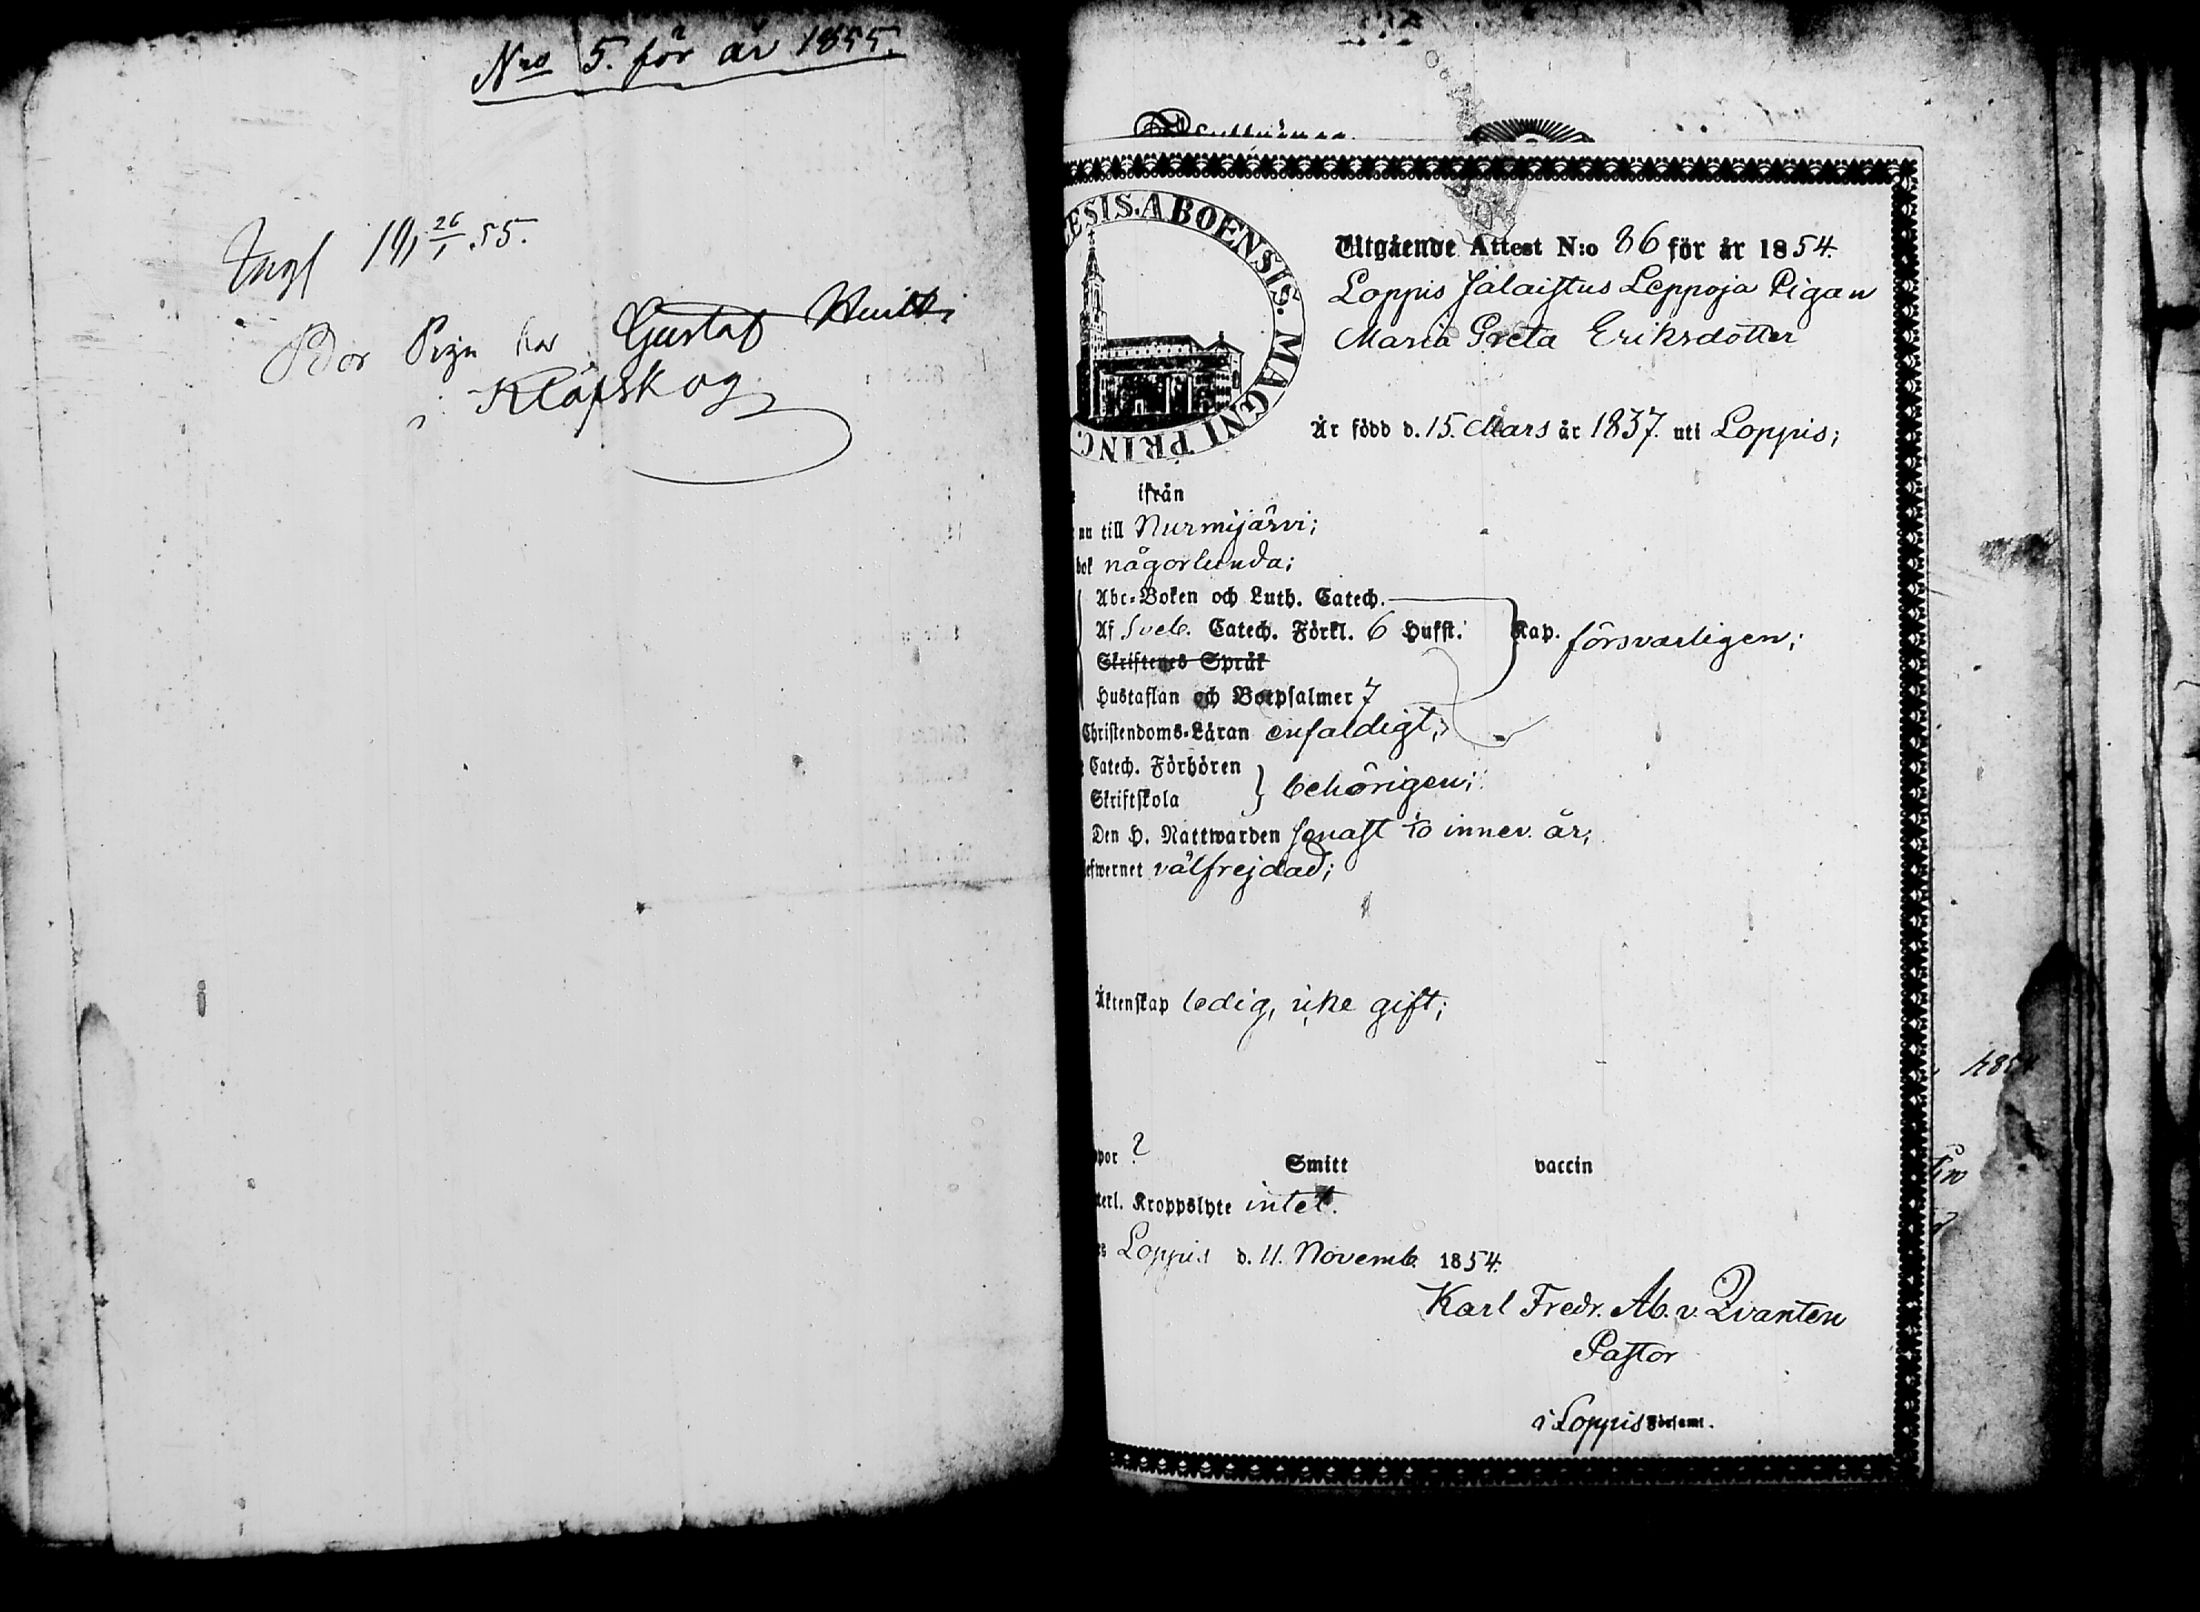 Nro 5. för år 1855.
Ingl 19, 26/1 .55.
Bor Pign hos Gustaf
i Klöfskog
CESIS. ABOENSIS. MAGNI PRINC.
Utgående Attest N:o 86 för år 1854.
Loppis Jalaistus Leppoja Pigan
Maria Greta Eriksdotter
Är född d. 15. Mars år 1837. uti Loppis;
ifrån
nu till Nurmijärvi;
bok någorlunda;
Abc-Boken och Luth. Catech.
Af Sveb. Catech. Förkl. 6 Hufst. Kap. försvarligen;
Skriftenes Språk
Hustaflan och Botpsalmer 7
Christendoms-Läran enfaldigt;
Catech. Förhören
Skriftskola } behörigen;
Den H. Nattwarden senast innev. år;
efwernet välfrejdad;
Äktenskap ledig, icke gift;
ppor ? Smitt vaccin
terl. Kroppslyte intet.
es Loppis d. 11. Novemb. 1854.
Karl Fredr. Ab. v. Qvanten
Pastor
i Loppis Församl.
1854